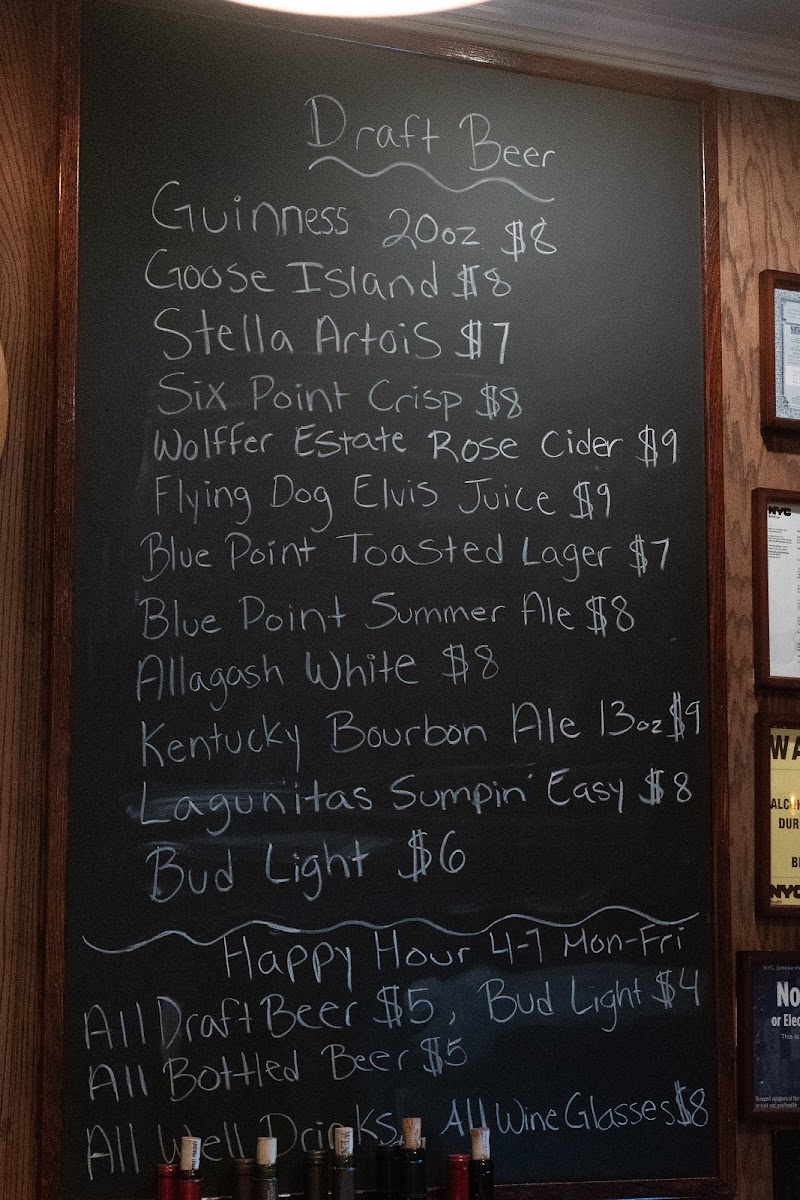 Draft Beer
Guinness 20oz $8
Goose Island $8
Stella Artois $7
Six Point Crisp $8
Wolffer Estate Rose Cider $9
Flying Dog Elvis Juice $9
Blue Point Toasted Lager $7
Blue Point Summer Ale $8
Allagash White $8
Kentucky Bourbon Ale 13oz $9
Lagunitas Sumpin' Easy $8
Bud Light $6
Happy Hour 4-7 Mon-Fri
All Draft Beer $5, Bud Light $4
All Bottled Beer $5
All Well Drinks, All Wine Glasses $8
NYC
NYC
No